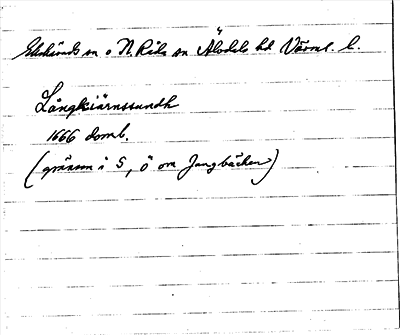 Ekshärads sn o N. Råda sn Älvdals hd Värml. l.
Långkiärnssundh
1666 domb.
(gränsen i S, Ö om Jangbäcken)